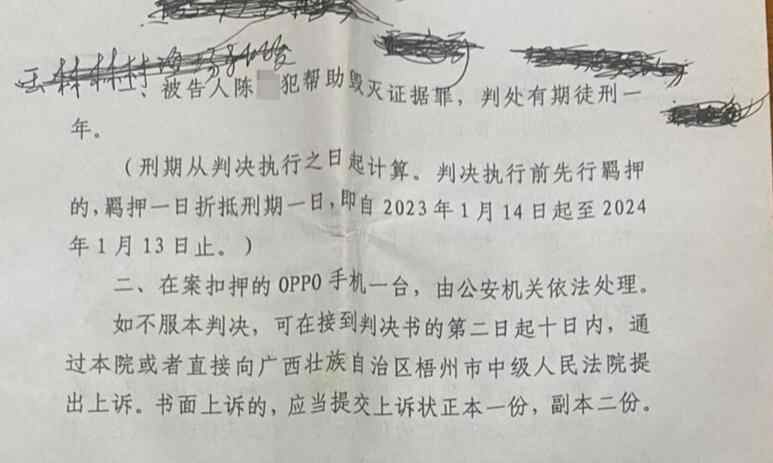 、被告人陈 犯帮助毁灭证据罪，判处有期徒刑一
年。
（刑期从判决执行之日起计算。判决执行前先行羁押
的，羁押一日折抵刑期一日，即自2023年1月14日起至2024
年1月13日止。）
二、在案扣押的OPPO手机一台，由公安机关依法处理。
如不服本判决，可在接到判决书的第二日起十日内，通
过本院或者直接向广西壮族自治区梧州市中级人民法院提
出上诉。书面上诉的，应当提交上诉状正本一份，副本二份。